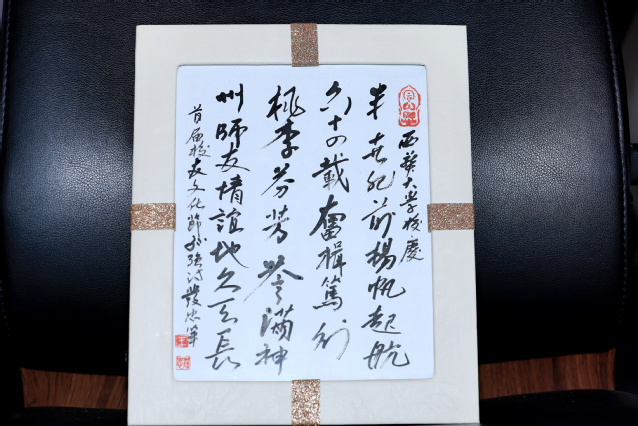 西華大学校慶
半世纪前揚帆起航
六十四載奮楫篤行
桃李芬芳誉滿神
州師友情誼地久天長
首届校友文化節孙强诗忠筆